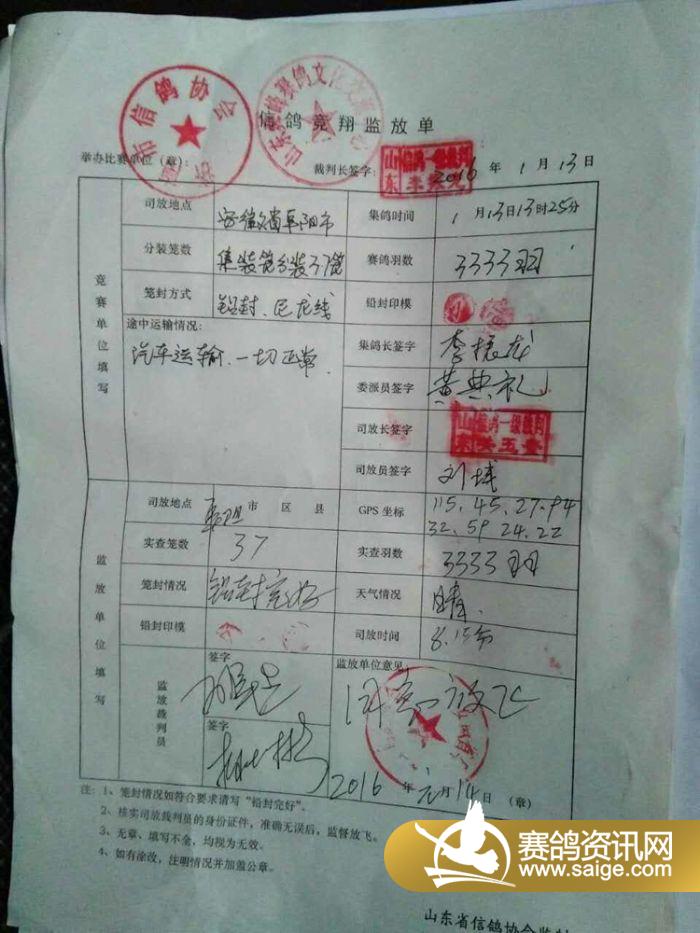 市信鸽协会
山东
信鸽竞翔监放单
举办比赛单位（章）：
裁判长签字：
2016 年 1 月 13 日
山东
信鸽一级裁判
竞赛单位填写
司放地点
安徽省阜阳市
集鸽时间
1月13日13时25分
分装笼数
集装笼分装37笼
赛鸽羽数
3333羽
笼封方式
铅封、尼龙线
铅封印模
途中运输情况：
汽车运输、一切正常
集鸽长签字
李振龙
委派员签字
黄典礼
司放长签字
信鸽一级裁判
司放员签字
刘城
监放单位填写
司放地点
阜阳 市 区 县
GPS 坐标
115.45.27.94
32.59 24.22
实查笼数
37
实查羽数
3333羽
笼封情况
铅封完好
天气情况
晴
铅封印模
司放时间
8.15分
监放裁判员
签字
签字
监放单位意见
同意放飞
2016 年 元 月 14 日 （章）
注：1、笼封情况如符合要求请写“铅封完好”。
2、核实司放裁判员的身份证件，准确无误后，监督放飞。
3、无章、填写不全，均视为无效。
4、如有涂改，注明情况并加盖公章。
赛鸽资讯网
www.saige.com
山东省信鸽协会监制